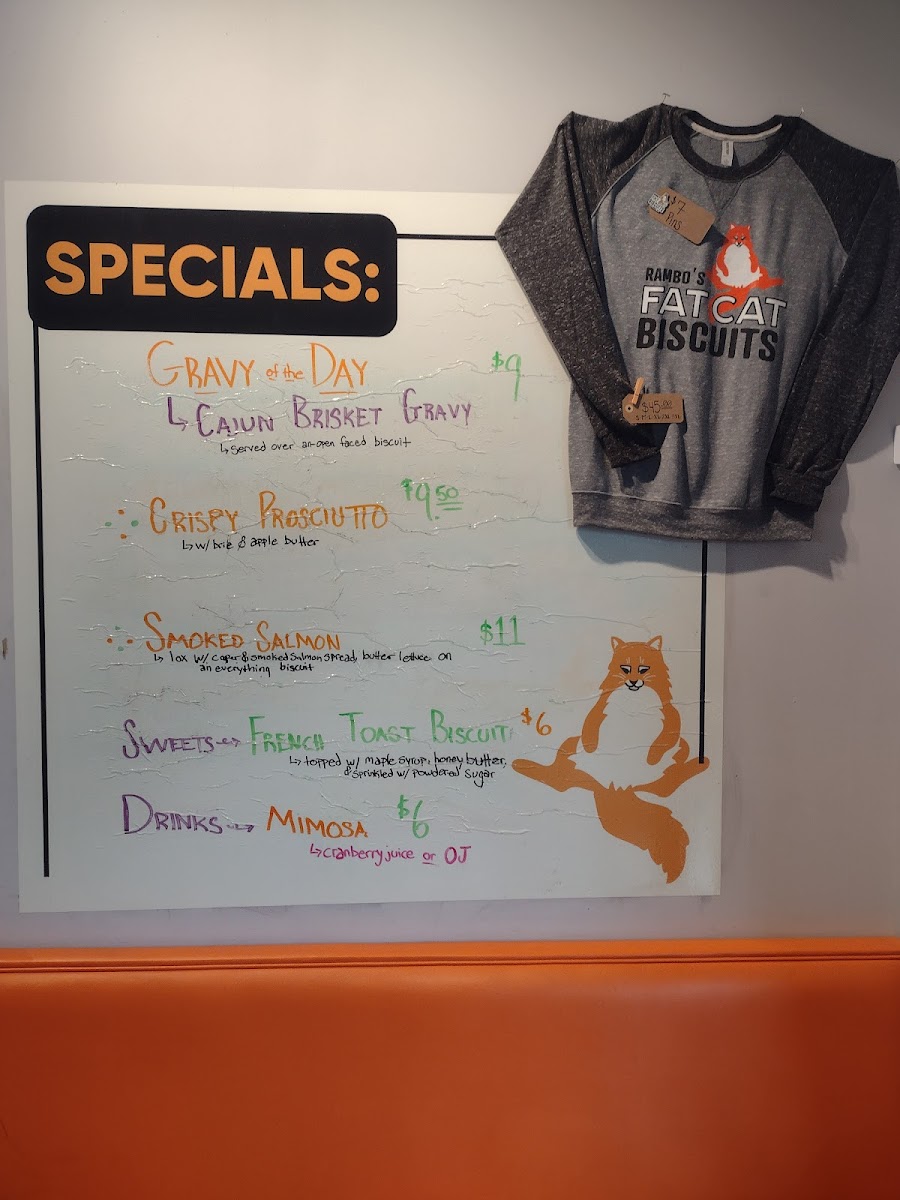 SPECIALS:
GRAVY of the DAY $9
↳ CAJUN BRISKET GRAVY
↳ served over an open faced biscuit
CRISPY PROSCIUTTO $9.50
↳ w/ brie & apple butter
SMOKED SALMON $11
↳ lox w/ caper & smoked salmon spread, butter lettuce on
an everything biscuit
SWEETS → FRENCH TOAST BISCUIT $6
↳ topped w/ maple syrup, honey butter,
& sprinkled w/ powdered sugar
DRINKS → MIMOSA $6
↳ cranberry juice or OJ
$7
Pins
RAMBO'S
FAT CAT
BISCUITS
$45.00